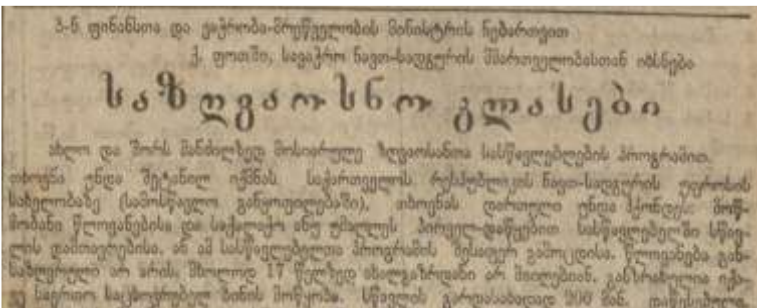 ბ-ნ ფინანსთა და ვაჭრობა-მრეწველობის მინისტრის ნებართვით
ქ. ფოთში, სავაჭრო ნავთ-სადგურის მმართველობასთან იხსნება
საზღვაოსნო კლასები
ახლო და შორს მანძილზედ მოსიარულე ზღვაოსანთა სასწავლებლების პროგრამით.
თხოვნა უნდა შეტანილ იქმნას საქართველოს რესპუბლიკის ნავთ-სადგურის უფროსის
სახელობაზე (სამოსწავლო განყოფილებაში), თხოვნას დართული უნდა ჰქონდეს: მოწ-
მობანი წლოვანებისა და საქალაქო ანუ უმაღლეს პირველ-დაწყებით სასწავლებელში სწავ-
ლის დამთავრებისა, ან ამ სასწავლებელთა პროგრამის შესაფერ გამოცდისა. წლოვანება გან-
საზღვრული არ არის, მხოლოდ 17 წელზედ ახალგაზრდანი არ მიიღებიან. განზრახულია იქა-
ვე საერთო საცხოვრებელ ბინის მოწყობა. სწავლის გარდასახადად 200 მან.